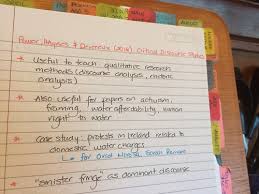 Power, Haynes & Devereux (2016) Critical Discourse Studies
* Useful to teach qualitative research
methods (discourse analysis, rhetoric
analysis)
* Also useful for papers on activism,
framing, water affordability, human
right to water
* Case study: protests in Ireland related to
domestic water charges
↳ for Oriol Mirosa, Sarah Romano
* "sinister fringe" as dominant discourse
AUGUST